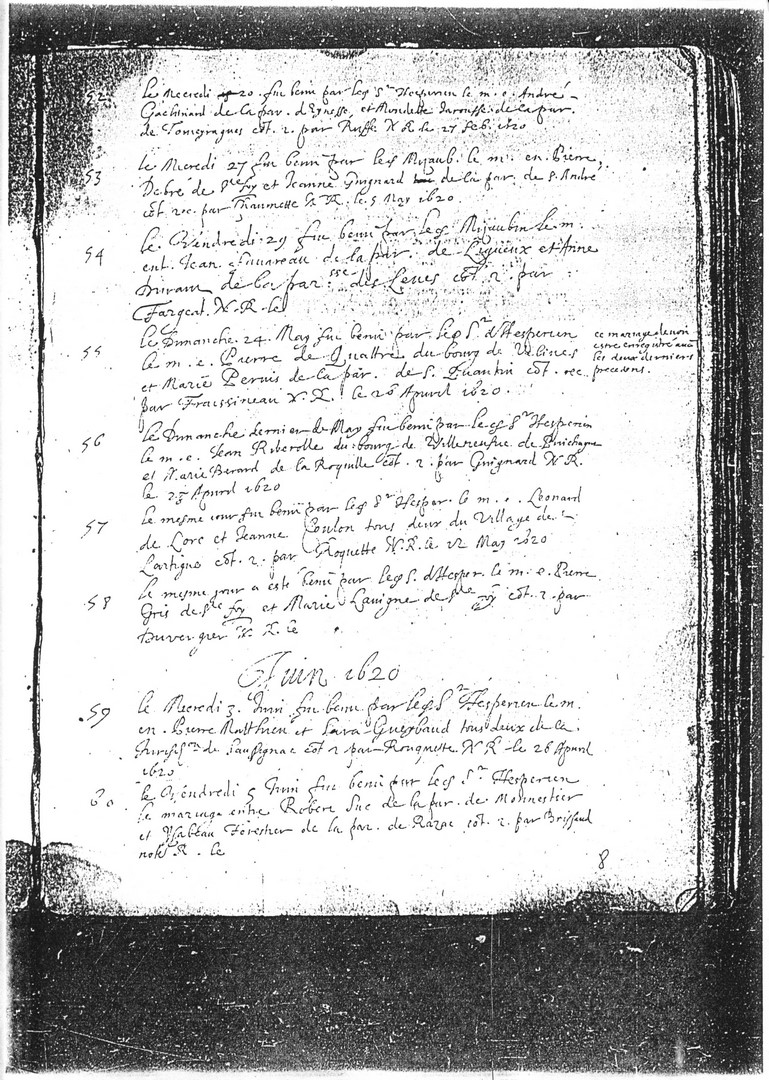 52. le Mecredi 20. fut beni par led Sr Hesperien le m. e. André
Gachinard de la par. d'Eynesse, et Mondette de la par.
de Tomeyragues côt. 2. par Ruffe N. R. le 27 Feb. 1620
53 le Mecredi 27 fut beni par led Mizaub. le m. en. Pierre
Debre de Ste foy et Jeanne Guignard de la par. de S. André
côt. rec. par Chaumette N. R. le 5 May 1620
54 le Vendredi 29 fut beni par led Mizaubin le m.
ent. Jean de la par. de Ligueux et Anne
Durant de la parsse des Leves côt. 2. par
Fargeal. N. R. le
55 le Dimanche. 24. May fut beni par led Sr d'Hesperien
le m. e. Pierre de Quattre du bourg de Velines
et Marie Peruis de la par. de S. Quantin côt. rec.
par Fraissineau N. R. le 20 Apuril 1620.
ce mariage devoit
estre enregistré avant
les deux derniers
precedens.
56 le Dimanche dernier de May fut beni par led Sr Hesperien
le m. e. Jean Riberolle du bourg de Villeneufve de Puichagut
et Marie Berard de la Roquille côt. 2. par Guignard N. R.
le 23 Apuril 1620
57 le mesme iour fut beni par led Sr Hesper. le m. e. Leonard
de Lorc et Jeanne Coulon tous deux du Village de
Lartigue côt. 2. par Roquette N. R. le 22 May 1620
58 le mesme jour a esté beni par led S. d'Hesper. le m. e. Pierre
Gris de Ste foy et Marie Lavigne de Ste foy côt. 2. par
Duvergier N. R. le
Juin 1620
59 le Mecredi 3. Juin fut beni par led Sr Hesperien le m.
en. Pierre Matthieu et Sara Gueybaud tous deux de la
Jurisdn de Saussignac côt 2 par Rouquette N R le 26 Apuril
1620
60 le Vendredi 5 Juin fut beni par led Sr Hesperien
le mariage entre Robert Suc de la par. de Monnestier
et Ysabeau Forestier de la par. de Razac côt. 2. par Brissaud
note R. le
8